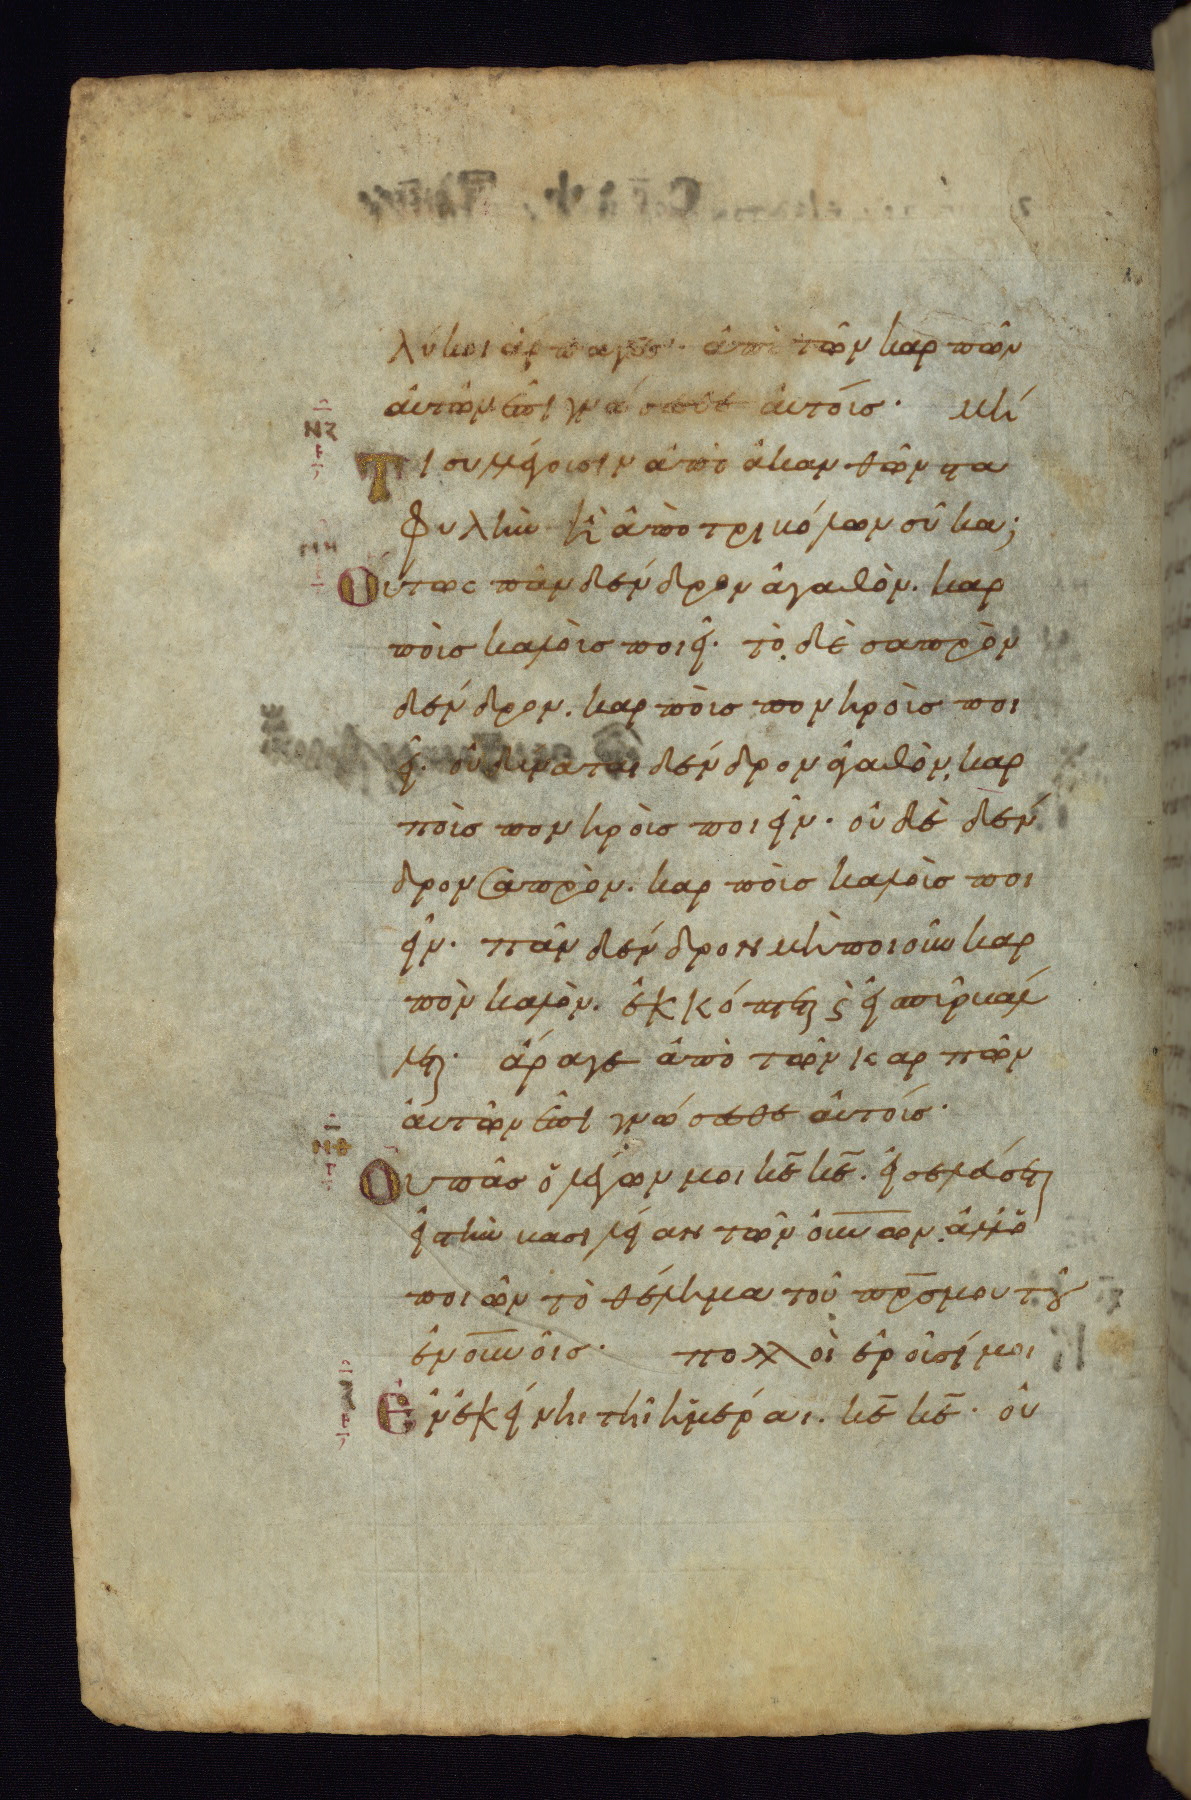 λύκοι ἅρπαγες· ἀπὸ τῶν καρπῶν
αὐτῶν ἐπιγνώσεσθε αὐτούς· μή
ΝΖ
τι συλλέγουσιν ἀπὸ ἀκανθῶν στα
φυλὴν ἢ ἀπὸ τριβόλων σῦκα;
ΝΗ
Οὕτως πᾶν δένδρον ἀγαθὸν. καρ
ποὺς καλοὺς ποιεῖ· τὸ δὲ σαπρὸν
δένδρον. καρποὺς πονηροὺς ποι
εῖ· οὐ δύναται δένδρον ἀγαθὸν, καρ
ποὺς πονηροὺς ποιεῖν· οὐδὲ δέν
δρον σαπρὸν. καρποὺς καλοὺς ποι
εῖν· πᾶν δένδρον μὴ ποιοῦν καρ
πὸν καλὸν. ἐκκόπτεται ϗ εἰς πῦρ βάλ
λεται· ἄραγε ἀπὸ τῶν καρπῶν
αὐτῶν ἐπιγνώσεσθε αὐτούς·
ΝΘ
Οὐ πᾶς ὁ λέγων μοι κε κε. εἰσελεύσεται
εἰς τὴν βασιλείαν τῶν οὐνων. ἀλλ' ὁ
ποιῶν τὸ θέλημα τοῦ πρς μου τοῦ
ἐν οὐνοῖς· πολλοὶ ἐροῦσί μοι
Ξ
Ἐν ἐκείνηι τῆι ἡμέραι. κε κε· οὐ